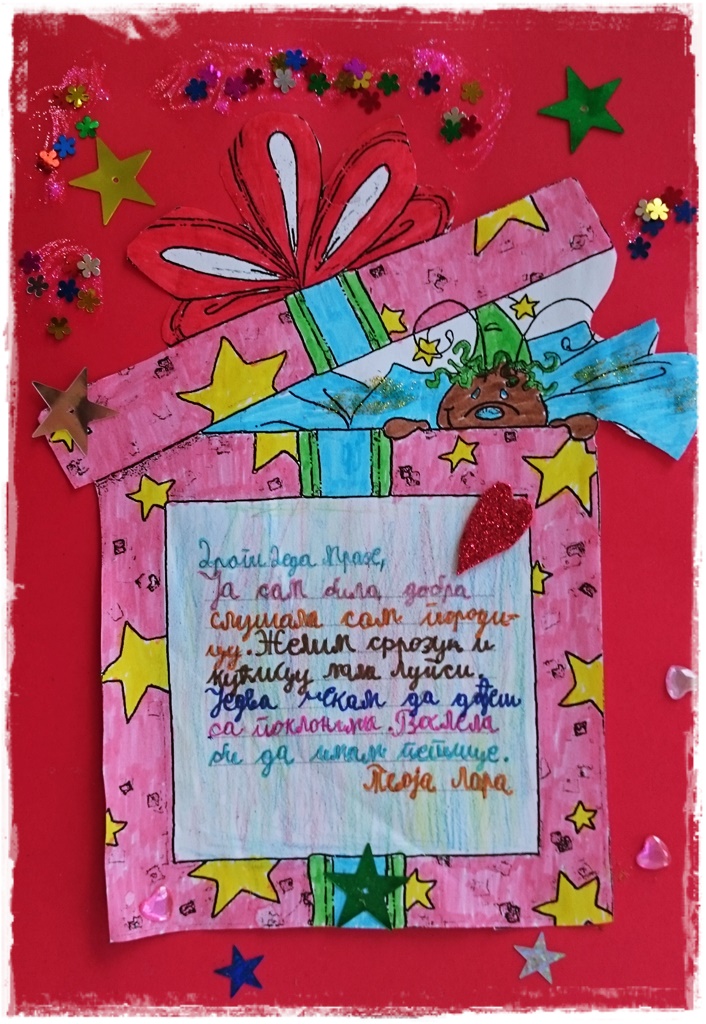 Драги Деда Мразе,
Ја сам била добра
слушала сам породи-
цу. Желим и
луткицу мала Луиси.
Једва чекам да дођеш
са поклонима. Волела
би да имам петице.
Твоја Лара